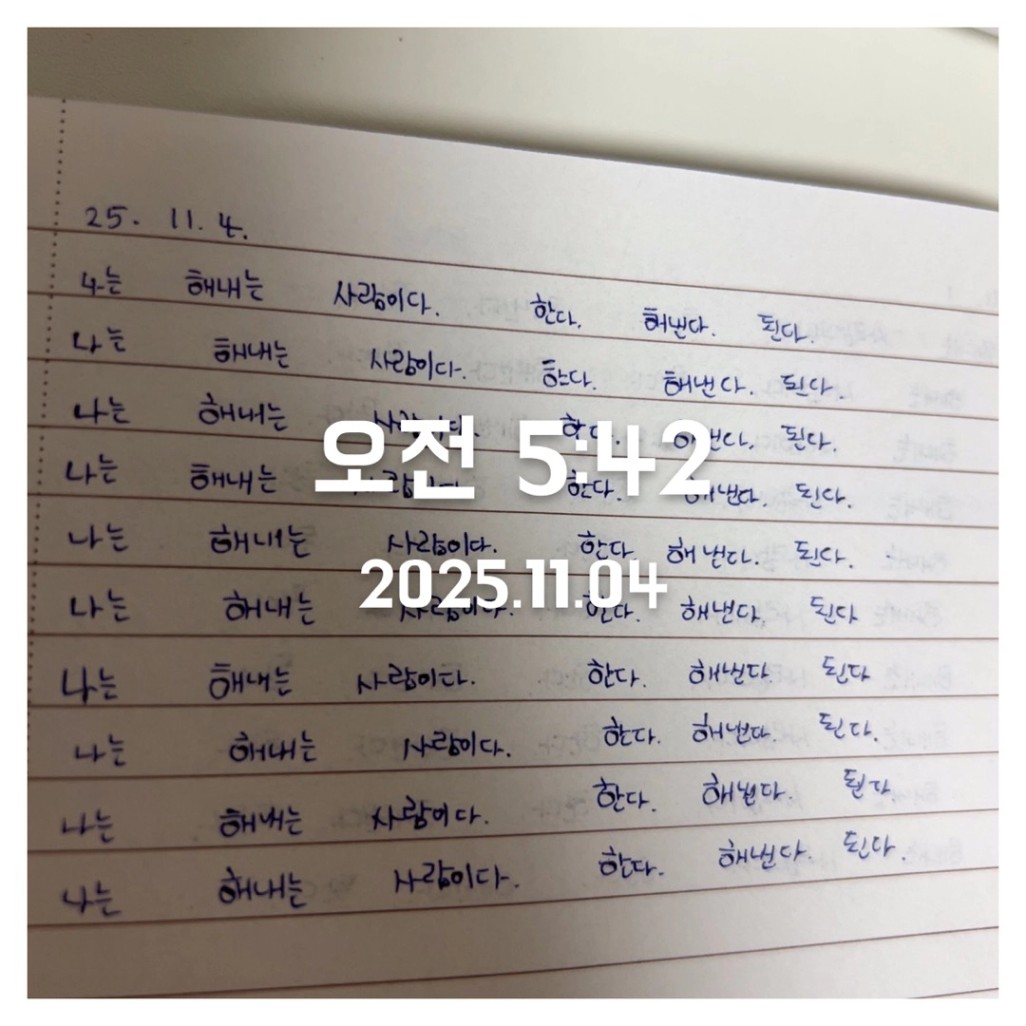 25. 11. 4.
나는 해내는 사람이다. 한다. 해낸다. 된다.
나는 해내는 사람이다. 한다. 해낸다. 된다.
나는 해내는 사람이다. 한다. 해낸다. 된다.
오전 5:42
나는 해내는 사람이다. 한다. 해낸다. 된다.
나는 해내는 사람이다. 한다. 해낸다. 된다.
2025.11.04
나는 해내는 사람이다. 한다. 해낸다. 된다
나는 해내는 사람이다. 한다. 해낸다. 된다
나는 해내는 사람이다. 한다. 해낸다. 된다.
나는 해내는 사람이다. 한다. 해낸다. 된다
나는 해내는 사람이다. 한다. 해낸다. 된다.